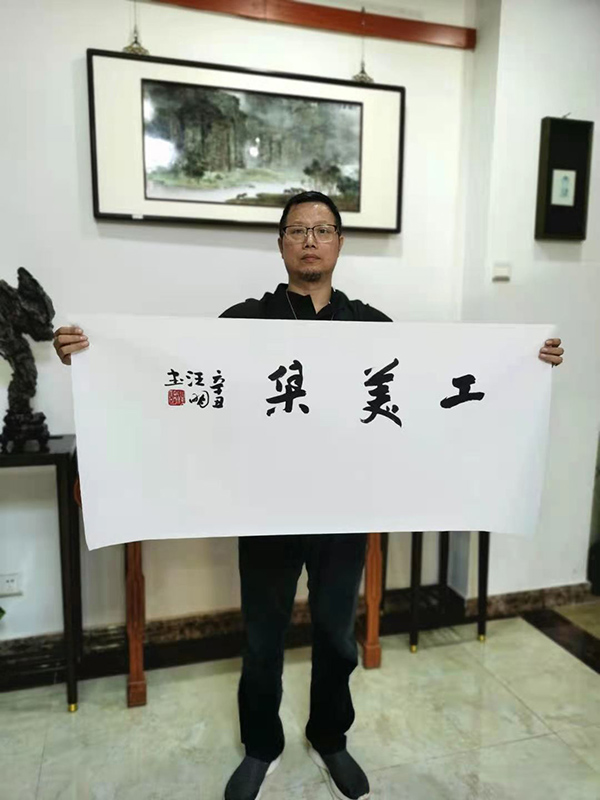 工美集
辛丑
汪明
书